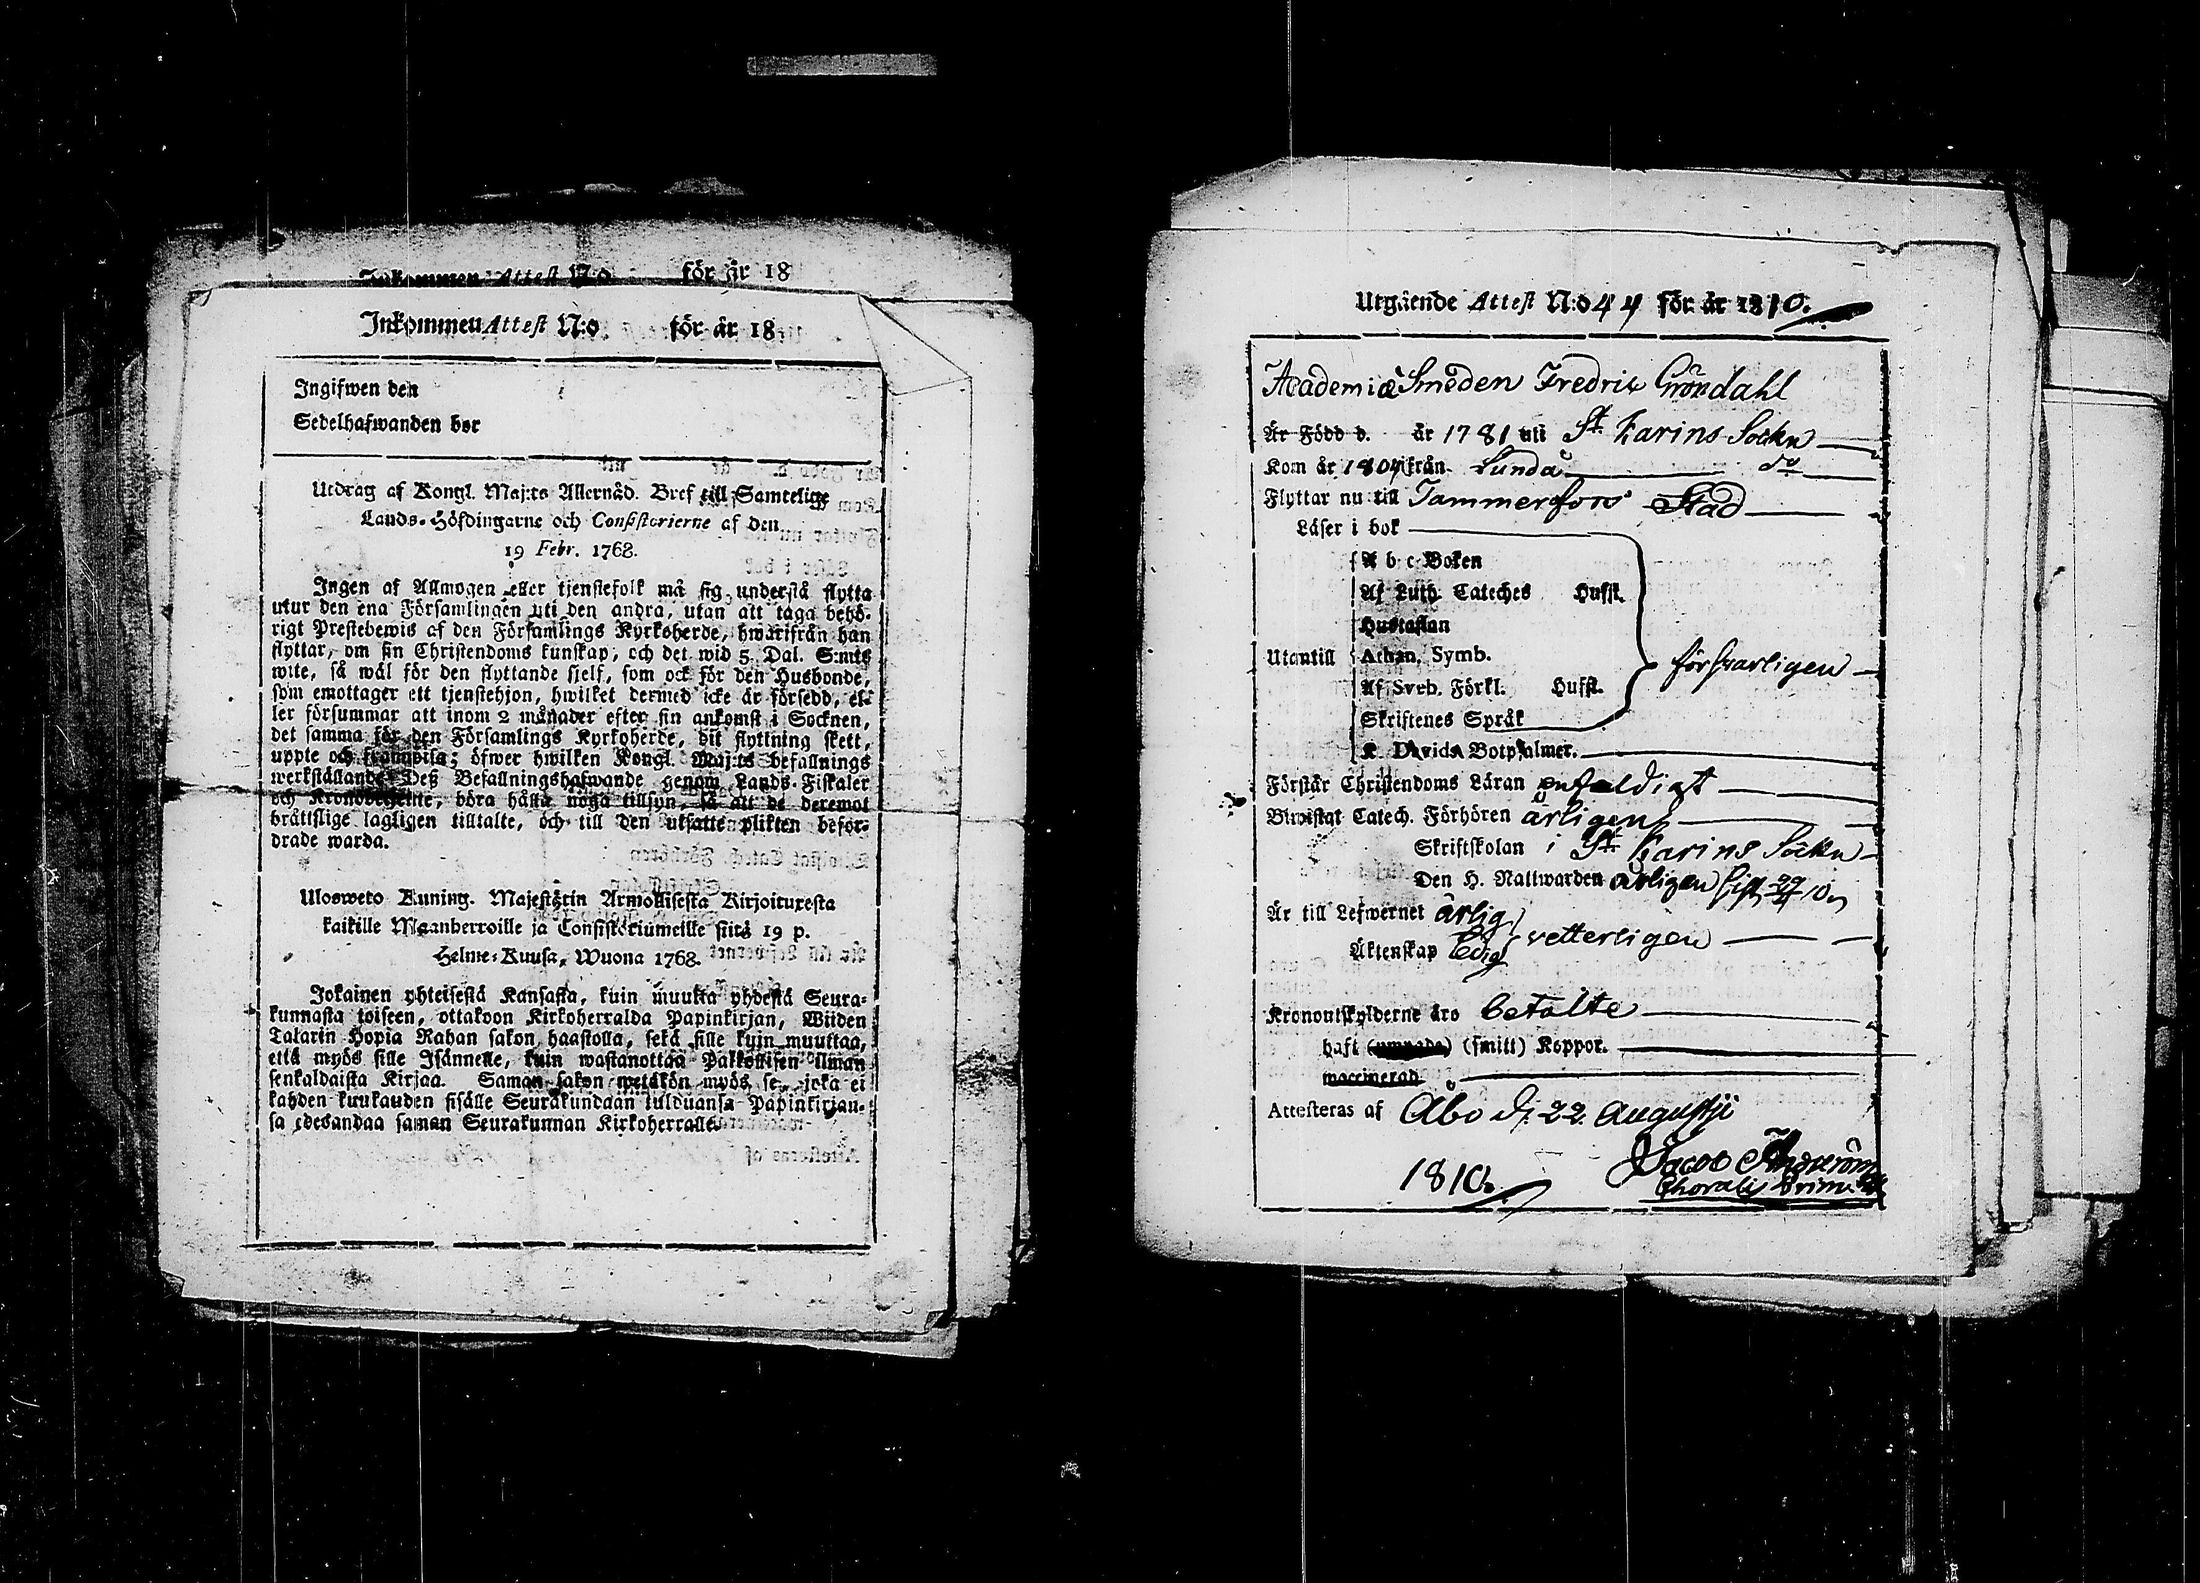 Inkommen Attest N:o för år 18
Inkommen Attest N:o för år 18
Ingifwen den
Sedelhafwanden bor
Utdrag af Kongl. Maj:ts Allernåd. Bref till Samtelige
Lands-Höfdingarne och Consistorierne af den
19 Febr. 1768.
Ingen af Allmogen eller tjenstefolk må sig understå flytta
utur den ena Församlingen uti den andra, utan att taga behö-
rigt Prestebewis af den Församlings Kyrkoherde, hwarifrån han
flyttar, om sin Christendoms kunskap, och det wid 5 Dal. S:mts
wite, så wäl för den flyttande sjelf, som ock för den Husbonde,
som emottager ett tjenstehjon, hwilket dermed icke är försedd, el-
ler försummar att inom 2 månader efter sin ankomst i Socknen,
det samma för den Församlings Kyrkoherde, dit flyttning skett,
uppte och framwisa; öfwer hwilken Kongl. Maj:ts befallnings
werkställande Deß Befallningshafwande genom Lands-Fiskaler
och Kronobetjente, böra hålla noga tillsyn, så att de deremot
brättslige lagligen tilltalte, och till den utsatte plikten befor-
drade warda.
Ulosweto Kuning. Majestätin Armollisesta Kirjoituxesta
kaikille Maanherroille ja Consistoriumeille siitä 19 p.
Helme-Kuusa, Wuona 1768.
Jokainen yhteisestä Kansasta, kuin muutta yhdestä Seura-
kunnasta toiseen, ottakoon Kirkoherralda Papinkirjan, Wiiden
Talarin Hopia Rahan sakon haastolla, sekä sille kuin muuttaa,
että myös sille Isännelle, kuin wastanottaa Palkollisen ilman
senkaldaista Kirjaa. Saman sakon wetäkön myös se, joka ei
kahden kuukauden sisälle Seurakundaan tulduansa Papinkirjan-
sa edesandaa saman Seurakunnan Kirkoherralle.
Utgående Attest N:o 44 för år 1810.
Academiæ Smeden Fredric Gröndahl
Är Född d. år 1781 uti St. Karins Sockn
Kom år 1804 ifrån Lundo do
Flyttar nu till Tammerfors Stad
Läser i bok
A b c-Boken
Af Luth. Cateches Hufst.
Hustaflan
Utantill Athan. Symb. försvarligen
Af Sveb. Förkl. Hufst.
Skriftenes Språk
K. Davids Botpsalmer.
Förstår Christendoms Läran enfaldigt
Biwistat Catech. Förhören årligen
Skriftskolan i St. Karins Sockn
Den H. Nattwarden årligen sist 10
Är till Lefwernet ärlig
Äktenskap ledig vetterligen
Kronoutskylderne äro betalte
haft (smitt) Koppor.
waccinerad
Attesteras af Åbo d. 22 Augusti
1810. Jacob